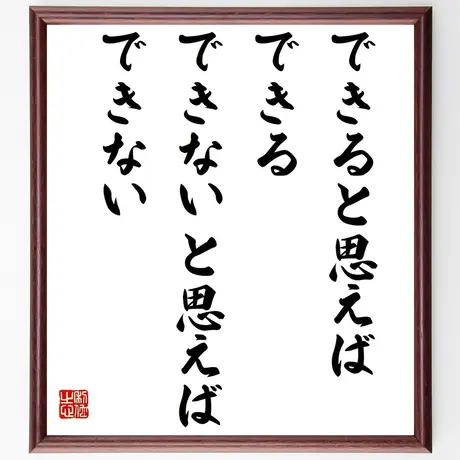 できると思えば
できる
できないと思えば
できない